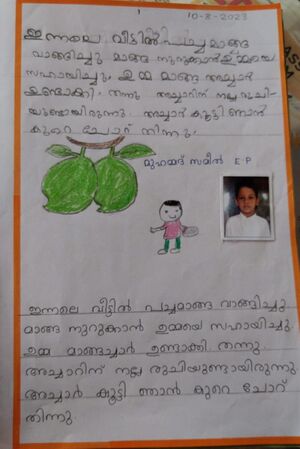 1
10-8-2023
ഇന്നലെ വീട്ടിൽ പച്ച മാങ്ങ
വാങ്ങിച്ചു മാങ്ങ നുറുക്കാൻ ഉമ്മയെ
സഹായിച്ചു. ഉമ്മ മാങ്ങ അച്ചാർ
ഉണ്ടാക്കി. തന്നു അച്ചാറിന് നല്ല രുചി-
യുണ്ടായിരുന്നു. അച്ചാർ കൂട്ടി ഞാൻ
കുറെ ചോറ് തിന്നു.
മുഹമ്മദ് സമീൽ E P
ഇന്നലെ വീട്ടിൽ പച്ചമാങ്ങ വാങ്ങിച്ചു.
മാങ്ങ നുറുക്കാൻ ഉമ്മയെ സഹായിച്ചു.
ഉമ്മ മാങ്ങാച്ചാർ ഉണ്ടാക്കി തന്നു.
അച്ചാറിന് നല്ല രുചിയുണ്ടായിരുന്നു
അച്ചാർ കൂട്ടി ഞാൻ കുറെ ചോറ്
തിന്നു.